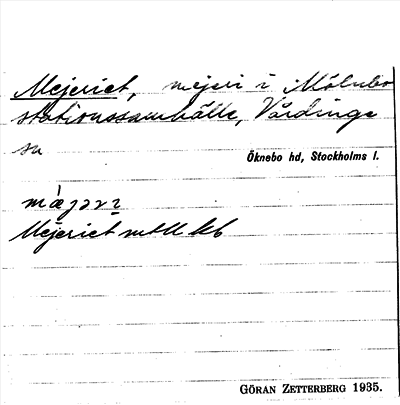 Mejeriet, mejeri i Mölnbo
stationssamhälle, Vårdinge
sn
Öknebo hd, Stockholms l.
Mejeriet
GÖRAN ZETTERBERG 1935.